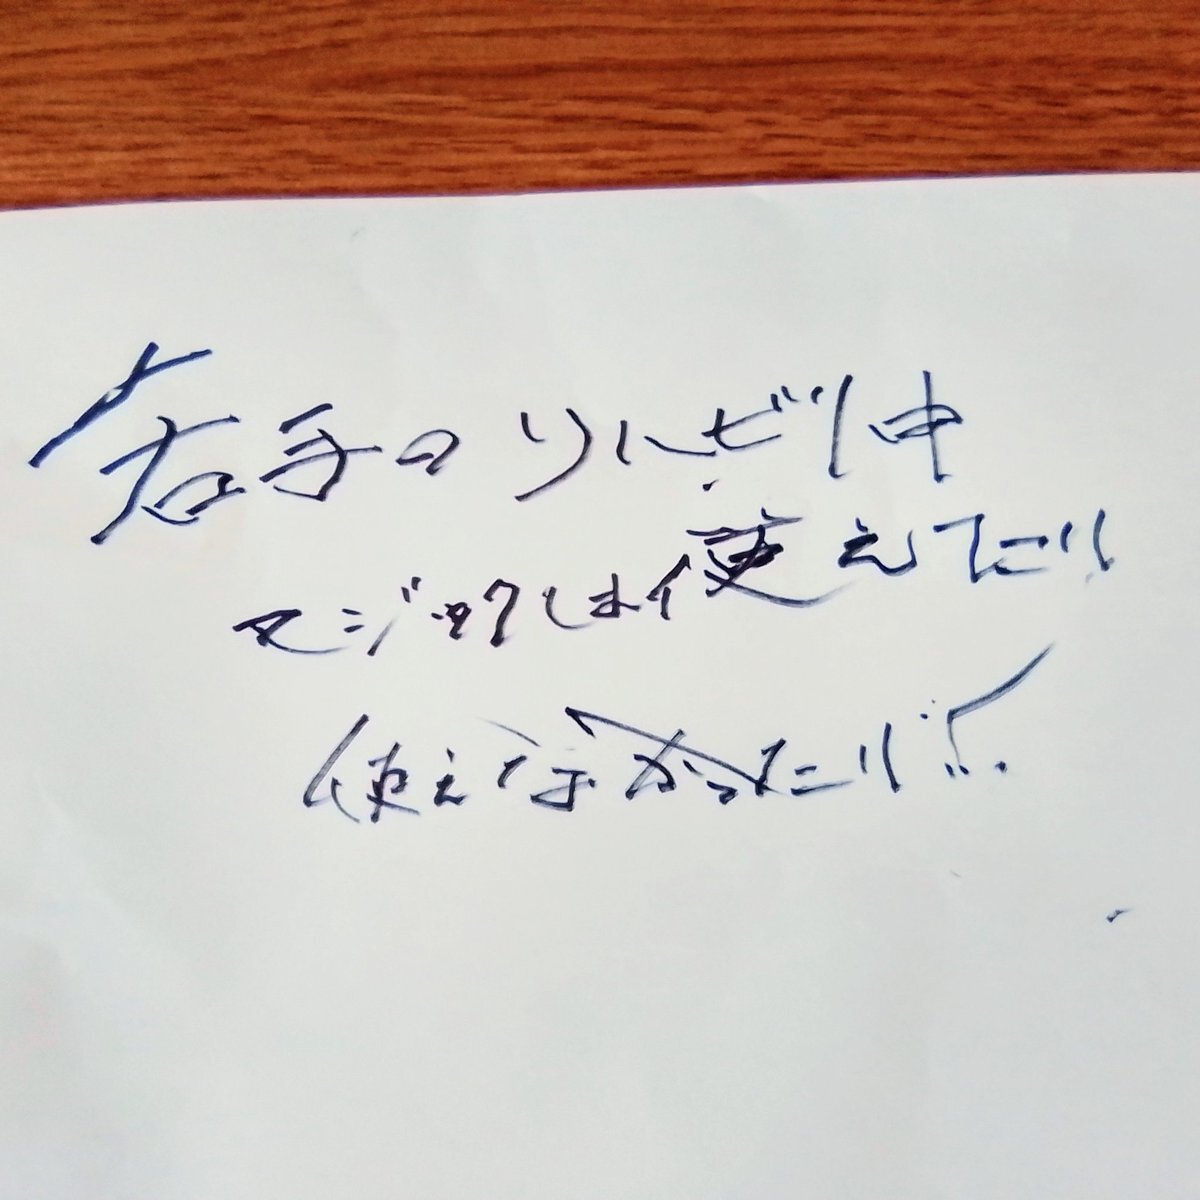 右手のリハビリ中
マジックしか使えてたり
使えなかったり!